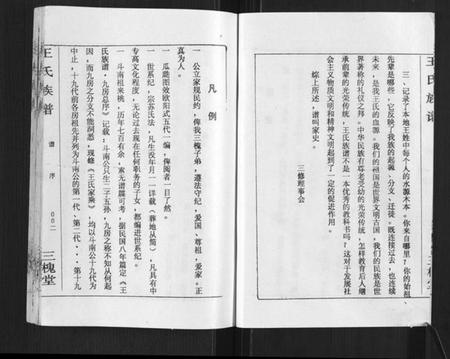 王氏族谱
三、记录了本地王姓中每个人的水源木本。你来自哪里？你的始祖、
先辈是哪些，它反映了我族的起源、分支、迁徙。既连接过去，也连续
未来，是我王氏的血源。我们的祖国是世界文明古国，我们的民族是世
界著称的礼仪之邦。中华民族有尊老爱幼的光荣传统，怎样教育后人继
承前辈的光荣传统，王氏族谱不是一本优秀的教科书吗？这对于发展社
会主义物质文明和精神文明起到了一定的促进作用。
综上所述，谱叫家史。
三修理事会
三槐堂
凡例
一 公立家规民约，俾我三槐子弟，遵法守纪，爱国、尊祖，爱家。正
真为人。
一 瓜瓞图效欧阳式五代一编，俾阅者一目了然。
一 世系纪，宗苏氏法，凡生没年月一一详载《葬地从简》，凡具有中
专高文化程度，无论过去现在任何职务的子女，都编进世系纪。
一 斗南祖来桃，历年七百有余，索无谱篇可考，据民国八年篇定《王
氏族谱·九房总序》记载：斗南公只生二子五孙，九房之称不知从何起
因，而九房之分支不能洞悉，现修《王氏家乘》，均以斗南公十九代为
中止，十九代前各房祖先并列为斗南公的第一代、第二代···第十九
王氏族谱
谱序
00二
三槐堂